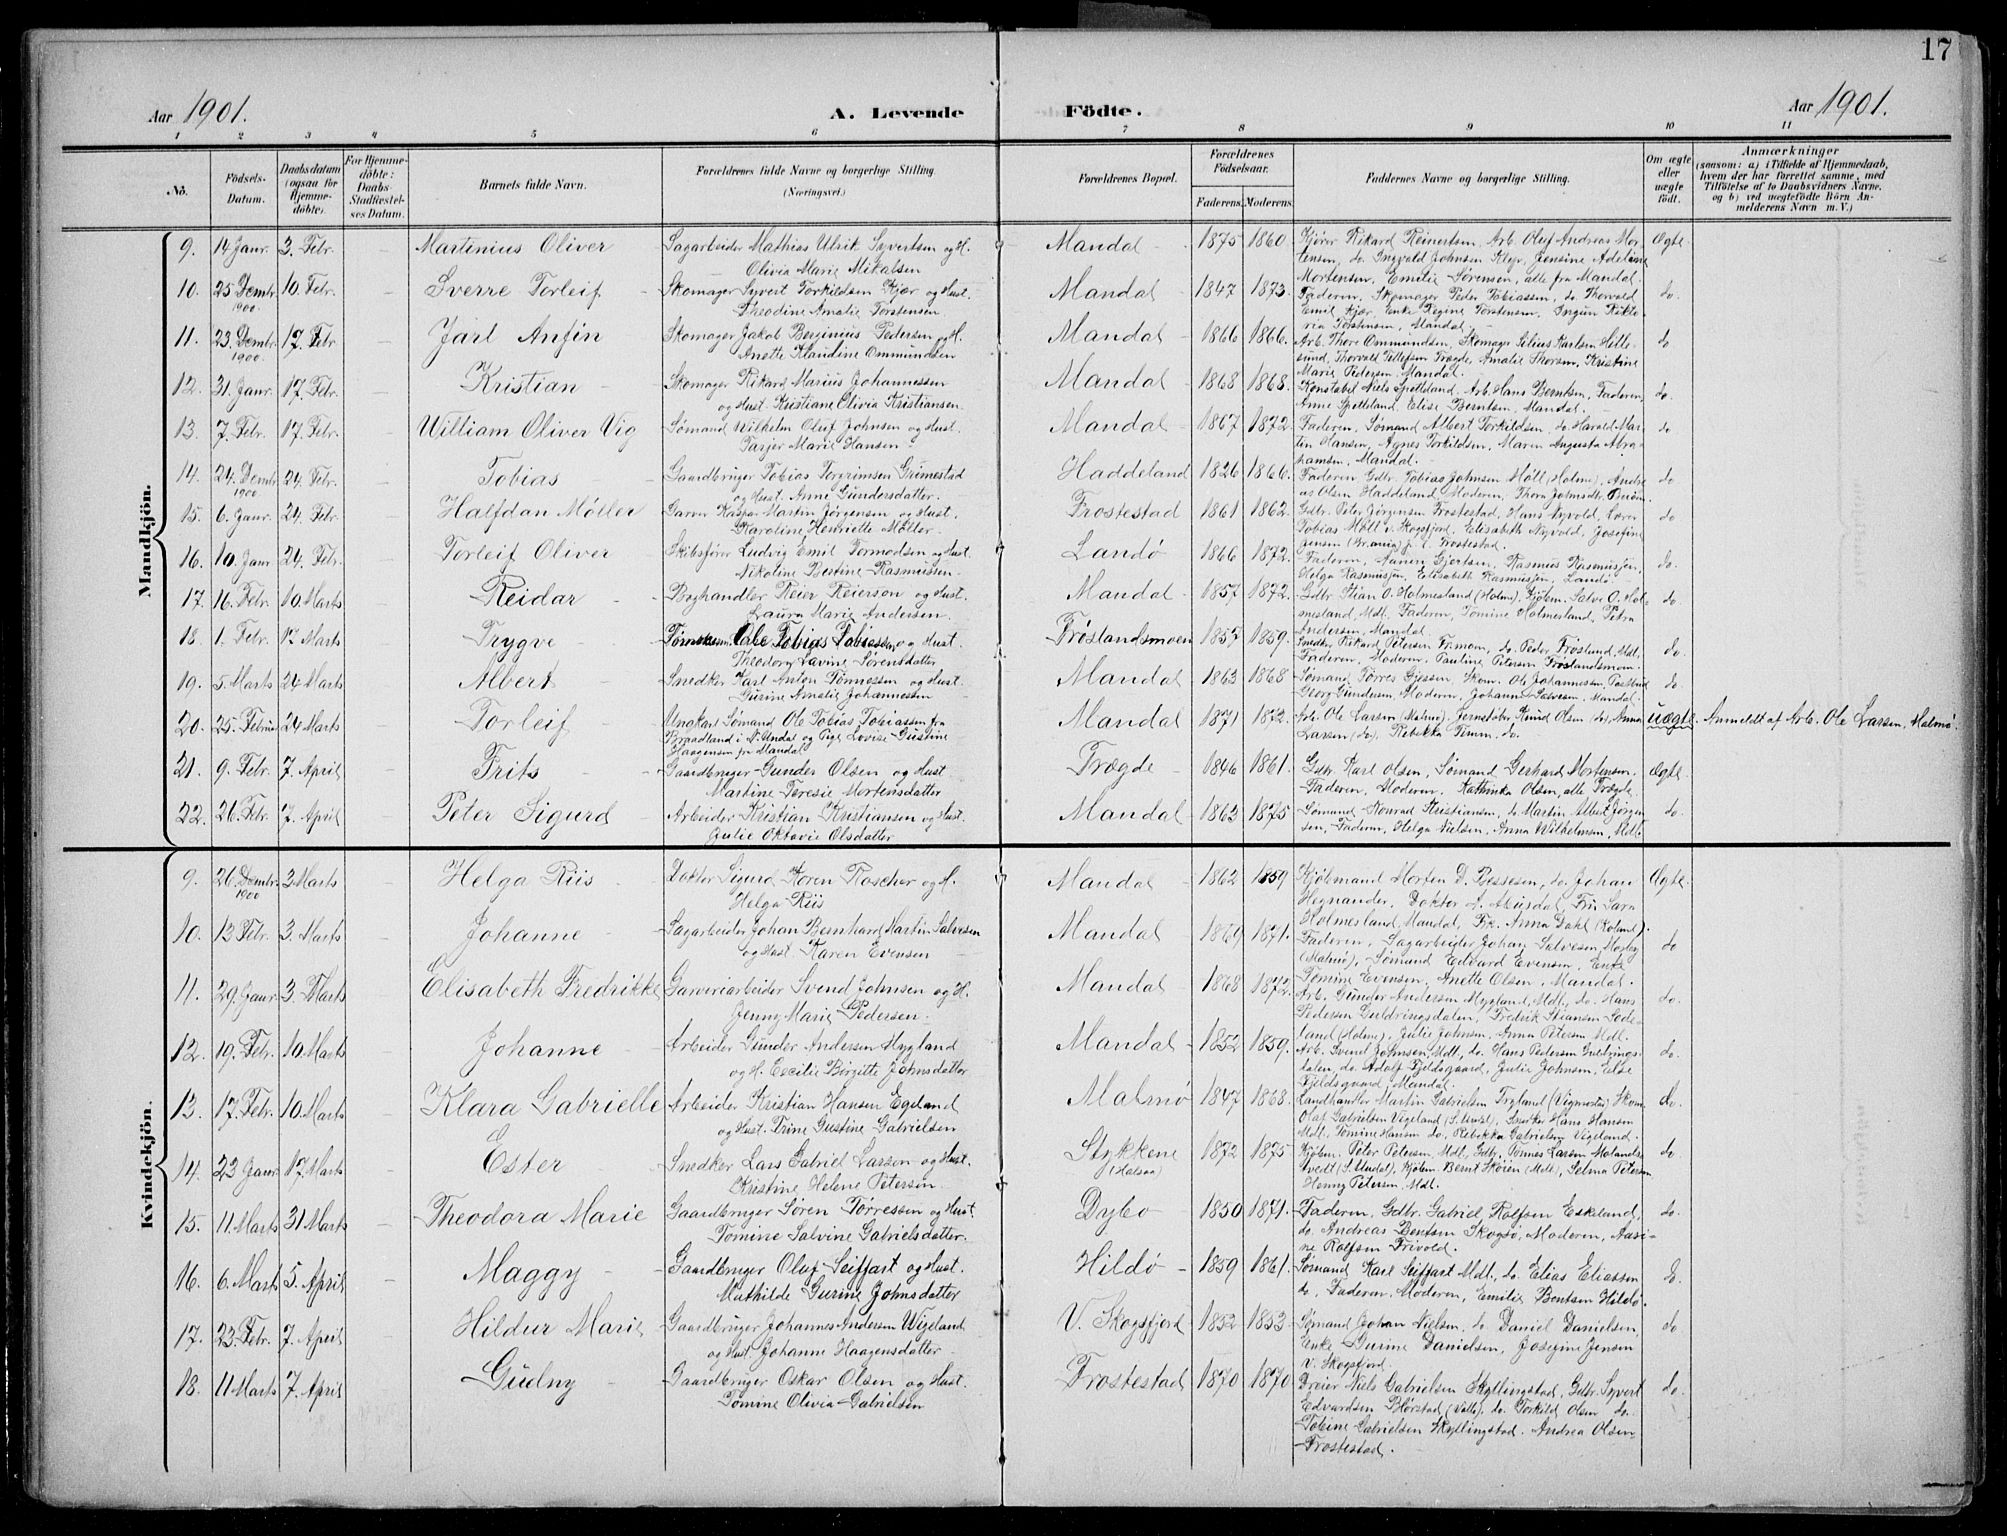 17
Aar 1901. A. Levende Födte. Aar 1901.
1 2 3 4 5 6 7 8 9 10 11
No. Födsels-Datum. Daabsdatum (ogsaa for Hjemmedöbte). For Hjemmedöbte: Daabs-Stadfæstelses Datum. Barnets fulde Navn. Forældrenes fulde Navne og borgerlige Stilling. (Næringsvei.) Forældrenes Bopæl. Forældrenes Fødselsaar. Faderens. Moderens. Faddernes Navne og borgerlige Stilling. Om ægte eller uægte født. Anmærkninger (saasom: a) i Tilfælde af Hjemmedaab, hvem der har forrettet samme, med Tilföielse af to Daabsvidners Navne, og b) ved uægtefödte Börn Anmelderens Navn m. V.)
Mandkjön.
9. 14 Janr. 3. Febr. Martinius Oliver Sagarbeider Mathias Ulrik Syvertsen og H. Olivia Marie Mikalsen Mandal 1875 1860. Kjører Rikard Reinertsen, Arb. Oluf Andreas Mortensen, do. Ingvald Johnsen Kleps, Jensine Adeline Mortensen, Emelie Sørensen, alle fra Mandal. Ægte
10. 25 Dembr. 1900. 10. Febr. Sverre Torleif Skomager Syvert Torkildsen Kjær og Hust. Theodine Amalie Torstensen Mandal 1847 1873. Faderen, Skomager Peder Tobiassen, do. Thorvald Emil Kjær, Enke Regine Torstensen, Mandal. do.
11. 23. Dembr. 1900. 17. Febr. Jarl Anfin Skomager Jakob Berginius Pedersen og H. Anette Klaudine Ommundsen Mandal 1866 1866. Arb. Thore Ommundsen, Skomager Karlsen Hillesund, Thorvald Tellefsen Trægde, Amalie Thorsen, Kristine Marie Pedersen, Mandal. do
12. 31. Janr. 17. Febr. Kristian Skomager Rikard Marius Johannessen og Hust. Kristiane Olivia Kristiansen Mandal 1868 1868. Konstabel Niels Spetteland, Arb. Hans Berntsen, Faderen, Anne Spetteland, Elise Berntsen, Mandal. do.
13. 7. Febr. 17. Febr. William Oliver Vig Sømand Wilhelm Oluf Johnsen og Hust. Marie Hansen Mandal 1867 1872. Faderen, Sømand Albert Torkildsen, do. Harald Martin Hansen, Agnes Torkildsen, Maren Augusta Abrahamsen, Mandal. do
14. 24. Dembr. 1900 24. Febr. Tobias Gaardbruger Tobias Torgrimsen Grimestad og Hust. Anne Gundersdatter. Haddeland 1826 1866. Faderen, Gdbr. Tobias Johnsen Møll (Holme), Andreas Olsen Haddeland, Moderen, do
15. 6. Janr. 24. Febr. Halfdan Möller Garver Kaspar Martin Jørgensen og Hust. Karoline Henriette Møller. Frostestad 1861 1862. Gdbr. Peter Jørgensen Frostestad, Hans Nyvold, Tobias Møll v. Skogsfjord, Elisabeth Nyvold, Josefine Jensen Frostestad. do
16. 10. Janr 24. Febr. Torleif Oliver Skibsfører Ludvig Emil Tormodsen og Hust. Nikoline Bertine Rasmussen. Landö 1866 1872. Faderen, Gjertsen, Rasmus Rasmussen, Helga Rasmussen, Elisabeth Rasmussen, Landö. do.
17. 16. Febr. 10. Marts Reidar Boghandler Reier Reierson og Hust. Laura Marie Andersen. Mandal 1857 1872. Gdbr. Stian O. Holmesland (Holme), Kjøbm. Salve O. Holmesland, Mdl. Faderen, Tomine Holmesland, Petra Andersen, Mandal. do.
18. 1. Febr. 17. Marts Trygve Ole Tobias Tobiassen og Hust. Theodora Lavine Sørensdatter Fröslandsmoen 1857 1859. Smedker Rikard Petersen, do. Peder Frøslund, Mdl. Faderen, Moderen, Pauline Petersen Frøslandsmoen. do.
19. 5. Marts 24. Marts Albert Snedker Karl Anton Tønnessen og Hust. Gurine Amalie Johannessen Mandal 1863 1868 Sømand Tørres Gjessen, Skom. Ole Johannessen, Postbud Georg Gundersen, Moderen, Johanne Salvesen, Mandal. do
20. 25. Februar 24. Marts Torleif Ungkarl Sømand Ole Tobias Tobiassen fra Braadland i N. Undal og Pige Lovise Gustine Haagensen fra Mandal Mandal 1871 1872. Arb. Ole Larsen (Malmø). Jernstøber Knud Olsen (do.), Anna Larsen (do.), Rebekka Timm. do. Uægte. Anmeldt af Arb. Ole Larsen, Malmø.
21. 9. Febr. 7. April Frits Gaardbruger Gunder Olsen og Hust. Martine Teresie Mortensdatter Trægde 1846 1861. Gdbr. Karl Olsen, Sømand Gerhard Mortensen, Faderen, Moderen, Kathinka Olsen, alle Trægde. Ægte
22. 26. Febr. 7. April Peter Sigurd Arbeider Kristian Kristiansen og Hust. Julie Oktavie Olsdatter Mandal 1863 1875 Sømand Konrad Kristiansen, do. Martin Albert Jörgensen, Faderen, Helga Nielsen, Anna Wilhelmsen, Mdl. do.
Kvindekjön.
9. 26. Dembr. 1900 3. Marts Helga Riis Doktor Sigurd Koren Roscher og H. Helga Riis Mandal 1862 1859 Kjöbmand Morten D. Bessesen, do. Johan Hegnander, Doktor A. Musdal, Fru Sara Holmesland, Mandal, Frk. Anna Dahl (Roland). Ægte.
10. 13 Febr. 3. Marts Johanne Sagarbeider Johan Bernhard Martin Salvesen og Hust. Karen Evensen Mandal 1869 1871. Faderen, Sagarbeider Johan Salvesen, (Malmö), Sømand Edvard Evensen, Enke Tomine Evensen, Anette Olsen, Mandal. do
11. 29. Janr. 3. Marts Elisabeth Fredrikke Garveriarbeider Svend Johnsen og H. Jenny Marie Pedersen. Mandal 1868 1872. Arb. Gunder Andersen Mygland, Mdl., do. Hans Pedersen Guldringsdalen, Fredrik Stiansen (Holme), Julie Johnsen, Anna Petersen Mdl. do.
12. 19. Febr. 10. Marts Johanne Arbeider Gunder Andersen Mygland og H. Cecilie Birgitte Johnsdatter Mandal 1852 1859. Arb. Svend Johnsen, Mdl., do. Hans Pedersen Guldringsdalen, do. Adolf Fjeldsgaard, Julie Johnsen, Else Fjeldsgaard, Mandal. do.
13. 17. Febr. 10. Marts Klara Gabrielle Arbeider Kristian Hansen Egeland og Hust. Trine Gustine Gabrielsen Malmø 1847 1868. Landhandler Martin Gabrielsen Fryland (Vigmostad), Skom. Olaf Gabrielsen Vigeland (S. Undal), Snedker Hans Hansen Mdl., Tomine Hansen do., Rebekka Gabrielsen Vigeland. do.
14. 23. Janr. 17. Marts Ester Snedker Lars Gabriel Larsen og Hust. Kristine Helene Petersen. Stykkene (Halsaa) 1872 1875 Kjöbm. Peter Petersen Mdl., Gdbr. Tønnes Larsen (S. Undal), Kjöbm. Bernt Skøien (Mdl.), Selma Petersen, Henny Petersen, Mdl. do.
15. 11. Marts 31. Marts Theodora Marie Gaardbruger Søren Tørressen og Hust. Tomine Salvine Gabrielsdatter. Dybo 1850 1871. Faderen, Gdbr. Gabriel Rolfsen Eskeland, do. Andreas Bentsen Skogsø, Moderen, Aasine Rolfsen Frivold. do.
16. 6. Marts 5. April Maggy Gaardbruger Oluf Seiffart og Hust. Mathilde Gurine Johnsdatter Hildö 1859 1861. Sømand Karl Seiffart Mdl., do. Elias Eliassen do., Faderen, Moderen, Emilie Bentsen Hildö. do.
17. 23. Febr. 7. April Hildur Marie Gaardbruger Johannes Andersen Wigeland og Hust. Johanne Haagensdatter. V. Skogsfjord 1852 1853. Sømand Johan Nielsen, do. Daniel Danielsen, Enke Gurine Danielsen, Josefine Jensen V. Skogsfjord. do
18. 11. Marts 7. April Gudny Gaardbruger Oskar Olsen og Hust. Tomine Olivia Gabrielsen Frostestad 1870 1870. Dreier Niels Gabrielsen Skyllingstad, Gdbr. Syvert Edvardsen Blørstad (Valle), do. Torkild Olsen do. Tobine Gabrielsen Skyllingstad. Andrea Olsen Frostestad. do.